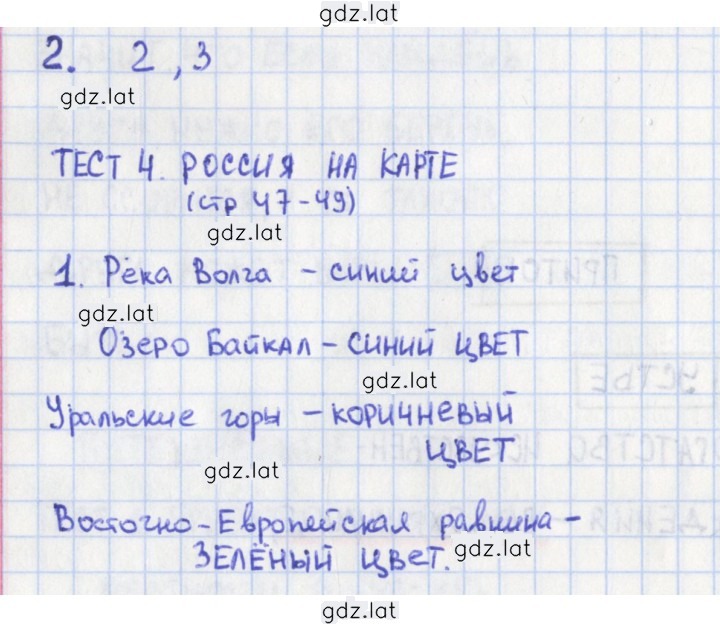 gdz.lat
2. 2,3
gdz.lat
ТЕСТ 4. РОССИЯ НА КАРТЕ
(стр 47-49)
gdz.lat
1. Река Волга - синий цвет
gdz.lat
Озеро Байкал - синий ЦВЕТ
gdz.lat
Уральские горы - коричневый
ЦВЕТ
gdz.lat
Восточно-Европейская равнина -
ЗЕЛЁНЫЙ цвет.
gdz.lat
gdz.lat